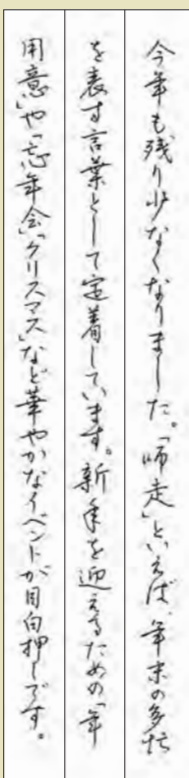 今年も残り少なくなりました。「師走」といえば、年末の多忙
を表す言葉として定着しています。新年を迎えるための「年
用意」や「忘年会」「クリスマス」など華やかなイベントが目白押しです。